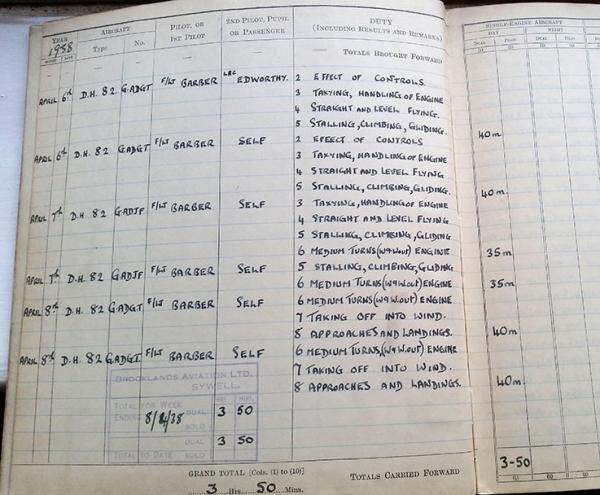 YEAR AIRCRAFT PILOT, OR 2ND PILOT, PUPIL DUTY SINGLE-ENGINE AIRCRAFT
1938 Type No. 1ST PILOT OR PASSENGER (INCLUDING RESULTS AND REMARKS) DAY NIGHT
MONTH DATE DUAL PILOT DUAL PILOT
— — — — — TOTALS BROUGHT FORWARD
APRIL 6th D.H. 82. GADGT F/LT BARBER LAC EDWORTHY. 2 EFFECT OF CONTROLS.
3 TAXYING, HANDLING OF ENGINE
4 STRAIGHT AND LEVEL FLYING.
5 STALLING, CLIMBING, GLIDING. 40m
APRIL 6th D.H. 82 GADGT F/LT BARBER SELF 2 EFFECT OF CONTROLS
3 TAXYING, HANDLING OF ENGINE
4 STRAIGHT AND LEVEL FLYING
5 STALLING, CLIMBING, GLIDING. 40m
APRIL 7th D.H. 82 GADJF F/LT BARBER SELF 3 TAXYING, HANDLING OF ENGINE
4 STRAIGHT AND LEVEL FLYING
5 STALLING, CLIMBING, GLIDING
6 MEDIUM TURNS (W & W.OUT) ENGINE 35m
APRIL 7th D.H. 82 GADJF F/LT BARBER SELF 5 STALLING, CLIMBING, GLIDING
6 MEDIUM TURNS (W & W.OUT) ENGINE 35m
APRIL 8th D.H. 82 GADGT F/LT BARBER SELF 6 MEDIUM TURNS (W & W.OUT) ENGINE
7 TAKING OFF INTO WIND.
8 APPROACHES AND LANDINGS. 40m
APRIL 8th D.H. 82 GADGT F/LT BARBER SELF 6 MEDIUM TURNS, (W & W.OUT) ENGINE
7 TAKING OFF INTO WIND.
8 APPROACHES AND LANDINGS. 40m
BROOKLANDS AVIATION LTD.
SYWELL.
HRS. MINS.
TOTAL FOR WEEK
ENDING 8/4/38 DUAL 3 50
SOLO
DUAL 3 50
TOTAL TO DATE SOLO
3-50
GRAND TOTAL [Cols. (1) to (10)] TOTALS CARRIED FORWARD
3 Hrs. 50 Mins.